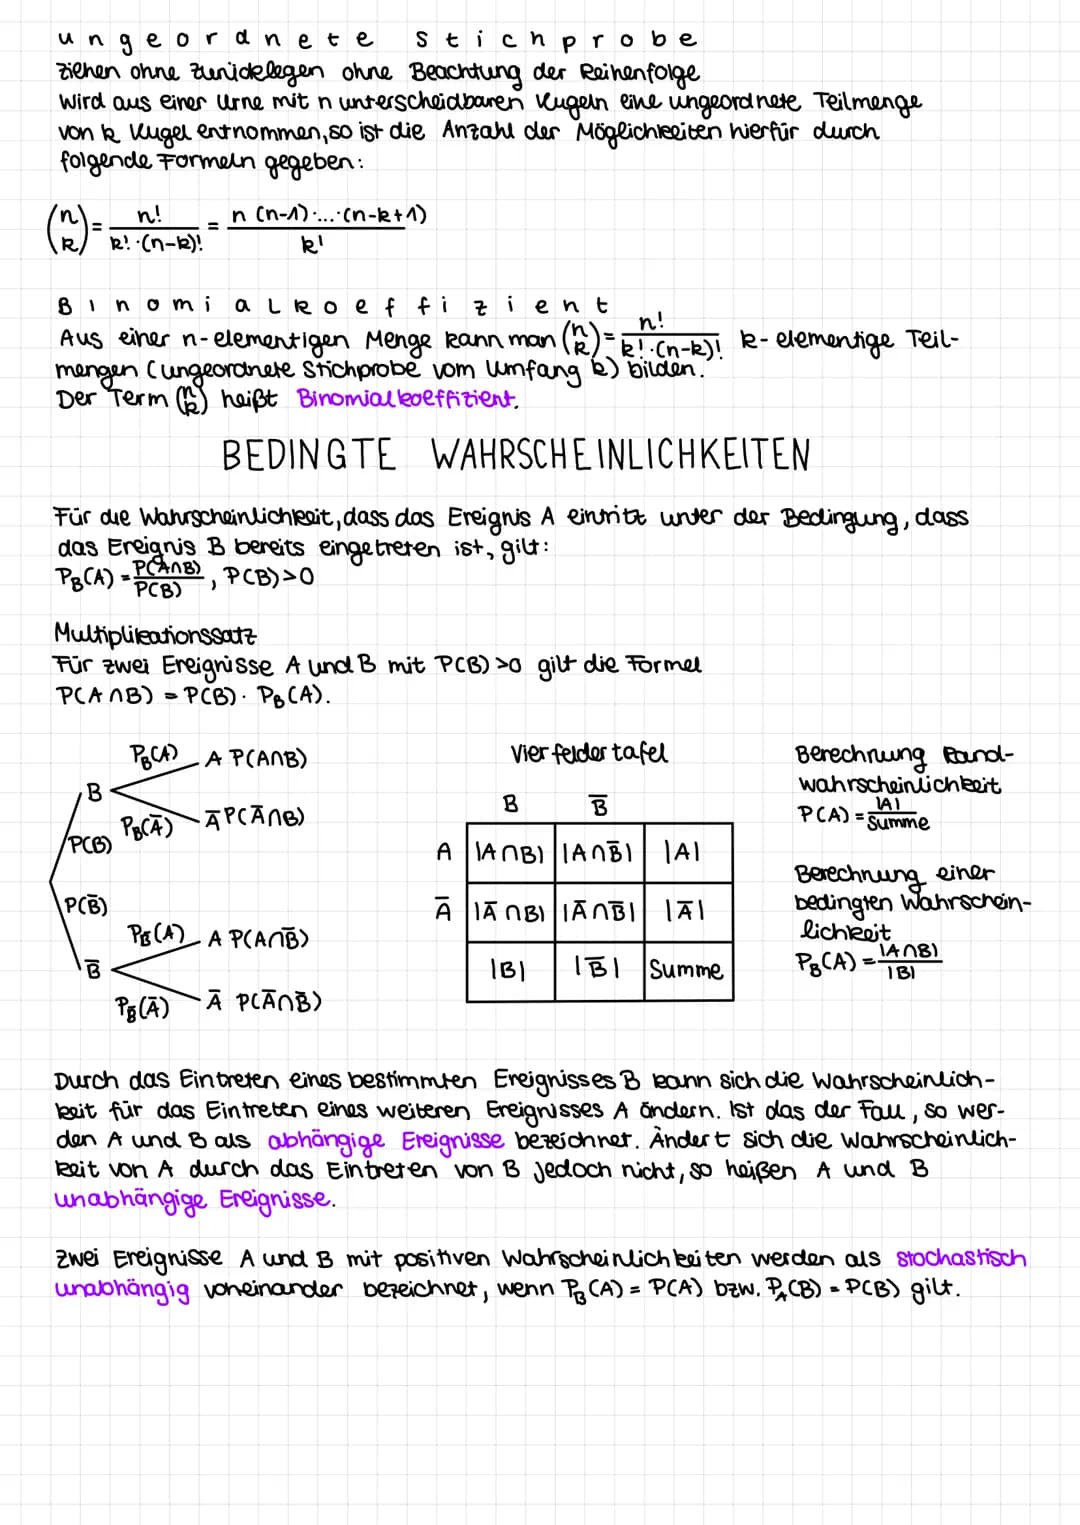 ungeordnete Stichprobe
Ziehen ohne Zurücklegen ohne Beachtung der Reihenfolge
Wird aus einer Urne mit n unterscheidbaren Kugeln eine ungeordnete Teilmenge
von k Kugel entnommen, so ist die Anzahl der Möglichkeiten hierfür durch
folgende Formeln gegeben:
(n k) = n! / (k! · (n-k)!) = n (n-1) · ... · (n-k+1) / k!
Binomialkoeffizient
Aus einer n-elementigen Menge kann man (n k) = n! / (k! · (n-k)!) k-elementige Teil-
mengen (ungeordnete Stichprobe vom Umfang k) bilden.
Der Term (n k) heißt Binomialkoeffizient.
BEDINGTE WAHRSCHEINLICHKEITEN
Für die Wahrscheinlichkeit, dass das Ereignis A eintritt unter der Bedingung, dass
das Ereignis B bereits eingetreten ist, gilt:
P_B(A) = P(A∩B) / P(B), P(B)>0
Multiplikationssatz
Für zwei Ereignisse A und B mit P(B)>0 gilt die Formel
P(A∩B) = P(B) · P_B(A).
P_B(A) A P(A∩B)
B
P_B(Ā) Ā P(Ā∩B)
P(B)
P(B̄)
P_B̄(A) A P(A∩B̄)
B̄
P_B̄(Ā) Ā P(Ā∩B̄)
Vierfeldertafel
B B̄
A |A∩B| |A∩B̄| |A|
Ā |Ā∩B| |Ā∩B̄| |Ā|
|B| |B̄| Summe
Berechnung Rand-
wahrscheinlichkeit
P(A) = |A| / Summe
Berechnung einer
bedingten Wahrschein-
lichkeit
P_B(A) = |A∩B| / |B|
Durch das Eintreten eines bestimmten Ereignisses B kann sich die Wahrscheinlich-
keit für das Eintreten eines weiteren Ereignisses A ändern. Ist das der Fall, so wer-
den A und B als abhängige Ereignisse bezeichnet. Ändert sich die Wahrscheinlich-
keit von A durch das Eintreten von B jedoch nicht, so heißen A und B
unabhängige Ereignisse.
Zwei Ereignisse A und B mit positiven Wahrscheinlichkeiten werden als stochastisch
unabhängig voneinander bezeichnet, wenn P_B(A) = P(A) bzw. P_A(B) = P(B) gilt.